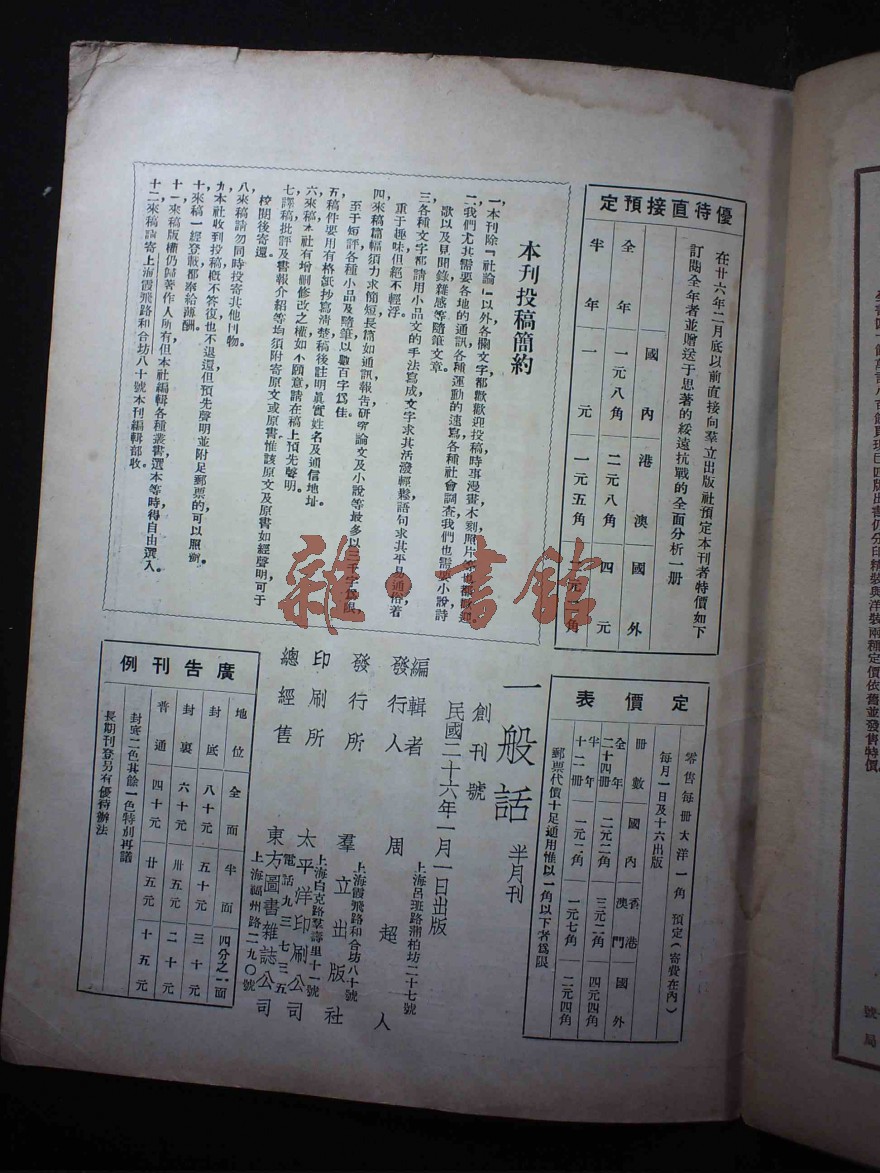 優待直接預定
在廿六年二月底以前直接向羣立出版社預定本刊者特價如下
訂閱全年者並贈送于思著的綏遠抗戰的全面分析一册
國內 港澳 國外
全年 一元八角 二元八角 四元
半年 一元 一元五角
本刊投稿簡約
一，本刊除『社論』以外各欄文字都歡迎投稿時事漫畫木刻照片等也都歡迎
二，我們尤其需要各地的通訊各種運動的速寫各種社會調查我們也需要小說詩
歌以及見聞錄雜感等隨筆文章。
三，各種文字都請用小品文的手法寫成文字求其活潑輕鬆語句求其平易通俗着
重于趣味但絕不輕浮。
四，來稿篇幅須力求簡短長篇如通訊報告研究論文及小說等最多以三千字爲限，
至于短評各種小品及隨筆以數百字爲佳。
五，稿件要用有格紙抄寫清楚稿後註明眞實姓名及通信地址。
六，來稿本社有增刪修改之權如不願意請在稿上預先聲明。
七，譯稿批評及書報介紹等均須附寄原文或原書惟該原文及原書如經聲明可于
校閱後寄還。
八，來稿請勿同時投寄其他刊物。
九，本社收到投稿概不答復也不退還但預先聲明並附足郵票的可以照辦。
十，來稿一經登載都奉給薄酬。
十一，來稿版權仍歸著作人所有但本社編輯各種叢書選本等時得自由選入。
十二，來稿請寄上海霞飛路和合坊八十號本刊編輯部收。
定價表
零售每册大洋一角 預定（寄費在內）
每月一日及十六出版
册數 國內 香港澳門 國外
全年二十四册 二元二角 三元二角 四元四角
半年十二册 一元二角 一元七角 二元四角
郵票代價十足通用惟以一角以下者爲限
一般話 半月刊
創刊號
民國二十六年一月一日出版
編輯者
發行人 周超人
上海呂班路 柏坊二十七號
發行所 羣立出版社
上海霞飛路和合坊八十號
印刷所 太平洋印刷公司
上海白克路羣壽里十一號
電話九三七三五
總經售 東方圖書雜誌公司
上海福州路二九〇號
廣告刊例
地位 全面 半面 四分之一面
封底 八十元 五十元 三十元
封裏 六十元 卅五元 二十元
普通 四十元 廿五元 十五元
封底二色其餘一色特別再議
長期刊登另有優待辦法
雜·書館
號
局